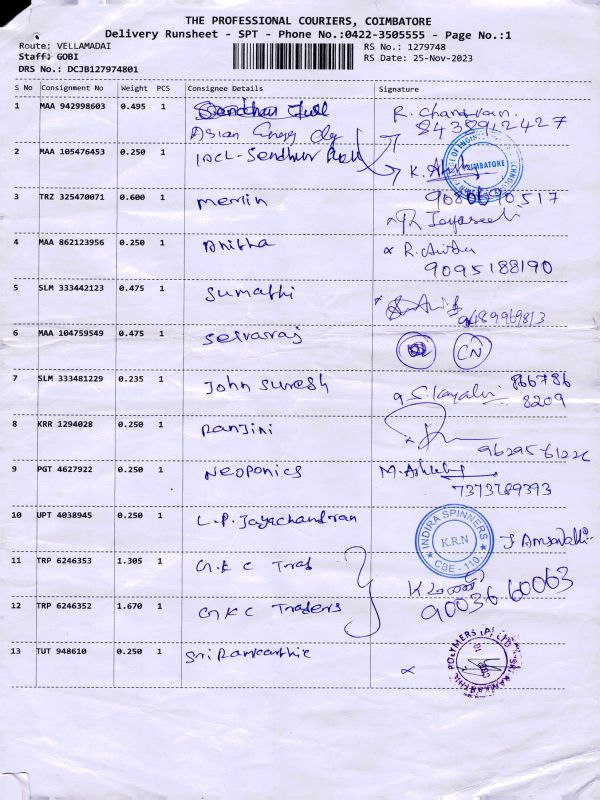 THE PROFESSIONAL COURIERS, COIMBATORE
Delivery Runsheet - SPT - Phone No.:0422-3505555 - Page No.:1
Route: VELLAMADAI RS No.: 1279748
Staff: GOBI RS Date: 25-Nov-2023
DRS No.: DCJB127974801
S No Consignment No Weight PCS Consignee Details Signature
1 MAA 942998603 0.495 1 Asian R. Chandran
8438912427
2 MAA 105476453 0.250 1 IOCL-Sendhur COIMBATORE
3 TRZ 325470071 0.600 1 Merlin 9080690517
Jayaseeli
4 MAA 862123956 0.250 1 Anitha R. Anitha
9095188190
5 SLM 333442123 0.475 1 Sumathi 9489969813
6 MAA 104759549 0.475 1 Selvaraj CN
7 SLM 333481229 0.235 1 John Suresh S. Kayalvi 866786
8209
8 KRR 1294028 0.250 1 Ranjini
9 PGT 4627922 0.250 1 Neoponics M.
7373789393
10 UPT 4038945 0.250 1 L.P. Jayachandran INDIRA SPINNERS K.R.N CBE - 110. J Amsavalli
11 TRP 6246353 1.305 1 G.K C Trad
12 TRP 6246352 1.670 1 GKC Traders 90036 60063
13 TUT 948610 0.250 1 Sri Ramkarthic POLYMERS (P) LTD